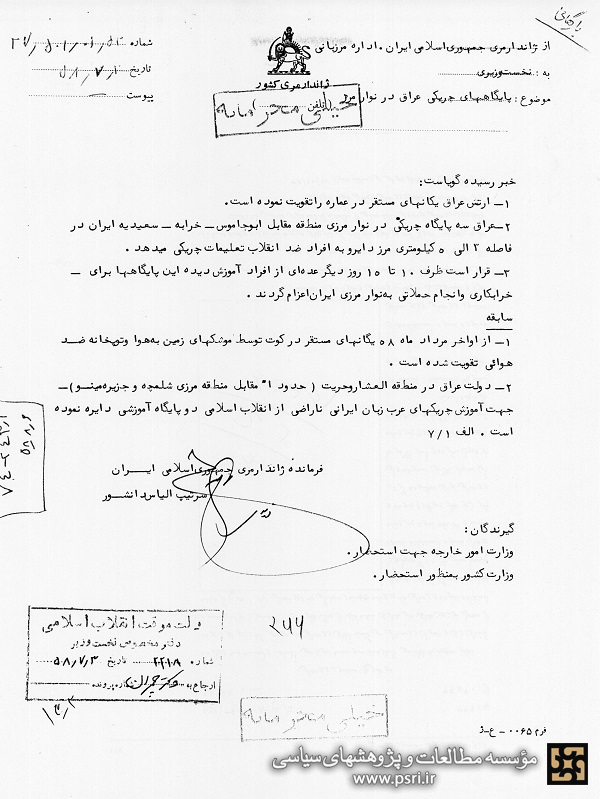 بایگانی
از ژاندارمری جمهوری اسلامی ایران ـ اداره مرزبانی
به : نخست وزیری
موضوع : پایگاههای چریکی عراق در نوار مرز (تلفن)
ژاندارمری کشور
خیلی محرمانه
شماره
تاریخ ۵۸٫۷٫۲
پیوست
خبر رسیده گویاست :
۱ـ ارتش عراق یکانهای مستقر در عماره را تقویت نموده است .
۲ـ عراق سه پایگاه چریکی در نوار مرزی منطقه مقابل ابوجاموس ـ خرابه ـ سعیدیه ایران در
فاصله ۳ الی ۵ کیلومتری مرز دایر و به افراد ضد انقلاب تعلیمات چریکی میدهد .
۳ـ قرار است ظرف ۱۰ تا ۱۵ روز دیگر عده‌ای از افراد آموزش دیده این پایگاهها برای ـ
خرابکاری و انجام حملاتی به نوار مرزی ایران اعزام گردند .
سابقه
۱ـ از اواخر مرداد ماه ۵۸ یگانهای مستقر در کوت توسط موشکهای زمین به هوا و توپخانه ضد
هوائی تقویت شده است .
۲ـ دولت عراق در منطقه العشار و حریت ( حدودا" مقابل منطقه مرزی شلمچه و جزیره مینو )ـ
جهت آموزش چریکهای عرب زبان ایرانی ناراضی از انقلاب اسلامی دو پایگاه آموزشی دایره نموده
است . الف ۷/۱
فرمانده ژاندارمری جمهوری اسلامی ایران
سرتیپ الیاس دانشور
گیرندگان :
وزارت امور خارجه جهت استحضار .
وزارت کشور بمنظور استحضار .
۲۶۶
دولت موقت انقلاب اسلامی
دفتر مخصوص نخست وزیر
شماره ۲۲۲۰۸ تاریخ ۵۸٫۷٫۳
ارجاع به دکتر چمران شماره پرونده
خیلی محرمانه
فرم ۰۰۶۵ ـ ع ـ ژ
مؤسسه مطالعات و پژوهشهای سیاسی
www.psri.ir